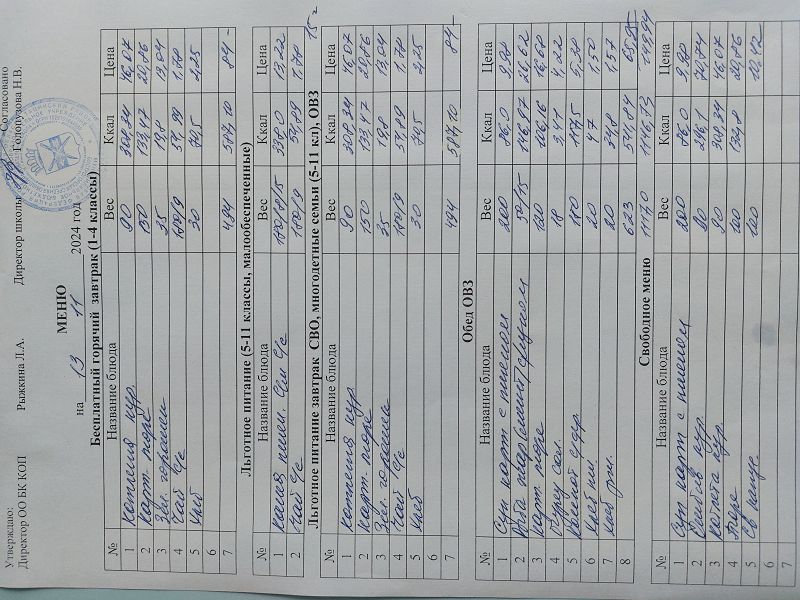 Утверждаю: Согласовано
Директор ОО БК КОП Рыжкина Л.А. Директор школы Голопузова Н.В.
МЕНЮ
на 13 11 2024 год
Бесплатный горячий завтрак (1-4 классы)
№ Название блюда Вес Ккал Цена
1 котлета кур. 90 308,34 46,07
2 карт. пюре 150 133,47 20,86
3 Зел. горошек 25 19,8 13,04
4 Чай с/с 180/9 57,89 1,78
5 хлеб 30 70,5 2,25
6
7 494 587,10 84-
Льготное питание (5-11 классы, малообеспеченные)
№ Название блюда Вес Ккал Цена
1 каша пшен. 338,0 13,22
2 Чай с/с 180/9 57,89 1,78
15-
Льготное питание завтрак СВО, многодетные семьи (5-11 кл), ОВЗ
№ Название блюда Вес Ккал Цена
1 котлета кур. 90 308,34 46,07
2 карт. пюре 150 133,47 20,86
3 Зел. горошек 25 19,8 13,04
4 Чай с/с 180/9 57,89 1,78
5 хлеб 30 70,5 2,25
6
7 494 587,10 84-
Обед ОВЗ
№ Название блюда Вес Ккал Цена
1 Суп карт с пшеном 200 86,0 9,98
2 146,97 26,62
3 карт. пюре 120 106,16 16,68
4 18 3,41 4,22
5 180 5,28
6 хлеб пш. 20 47 1,50
7 хлеб рж. 20 34,8 1,57
8 623 541,84 65,85
1117,0 1146,73 149,94
Свободное меню
№ Название блюда Вес Ккал Цена
1 Суп карт с пшеном 200 86,0 9,98
2 90 286,1 70,74
3 котлета кур. 90 308,34 46,07
4 Пюре 100 133,8 20,86
5 100
6
7